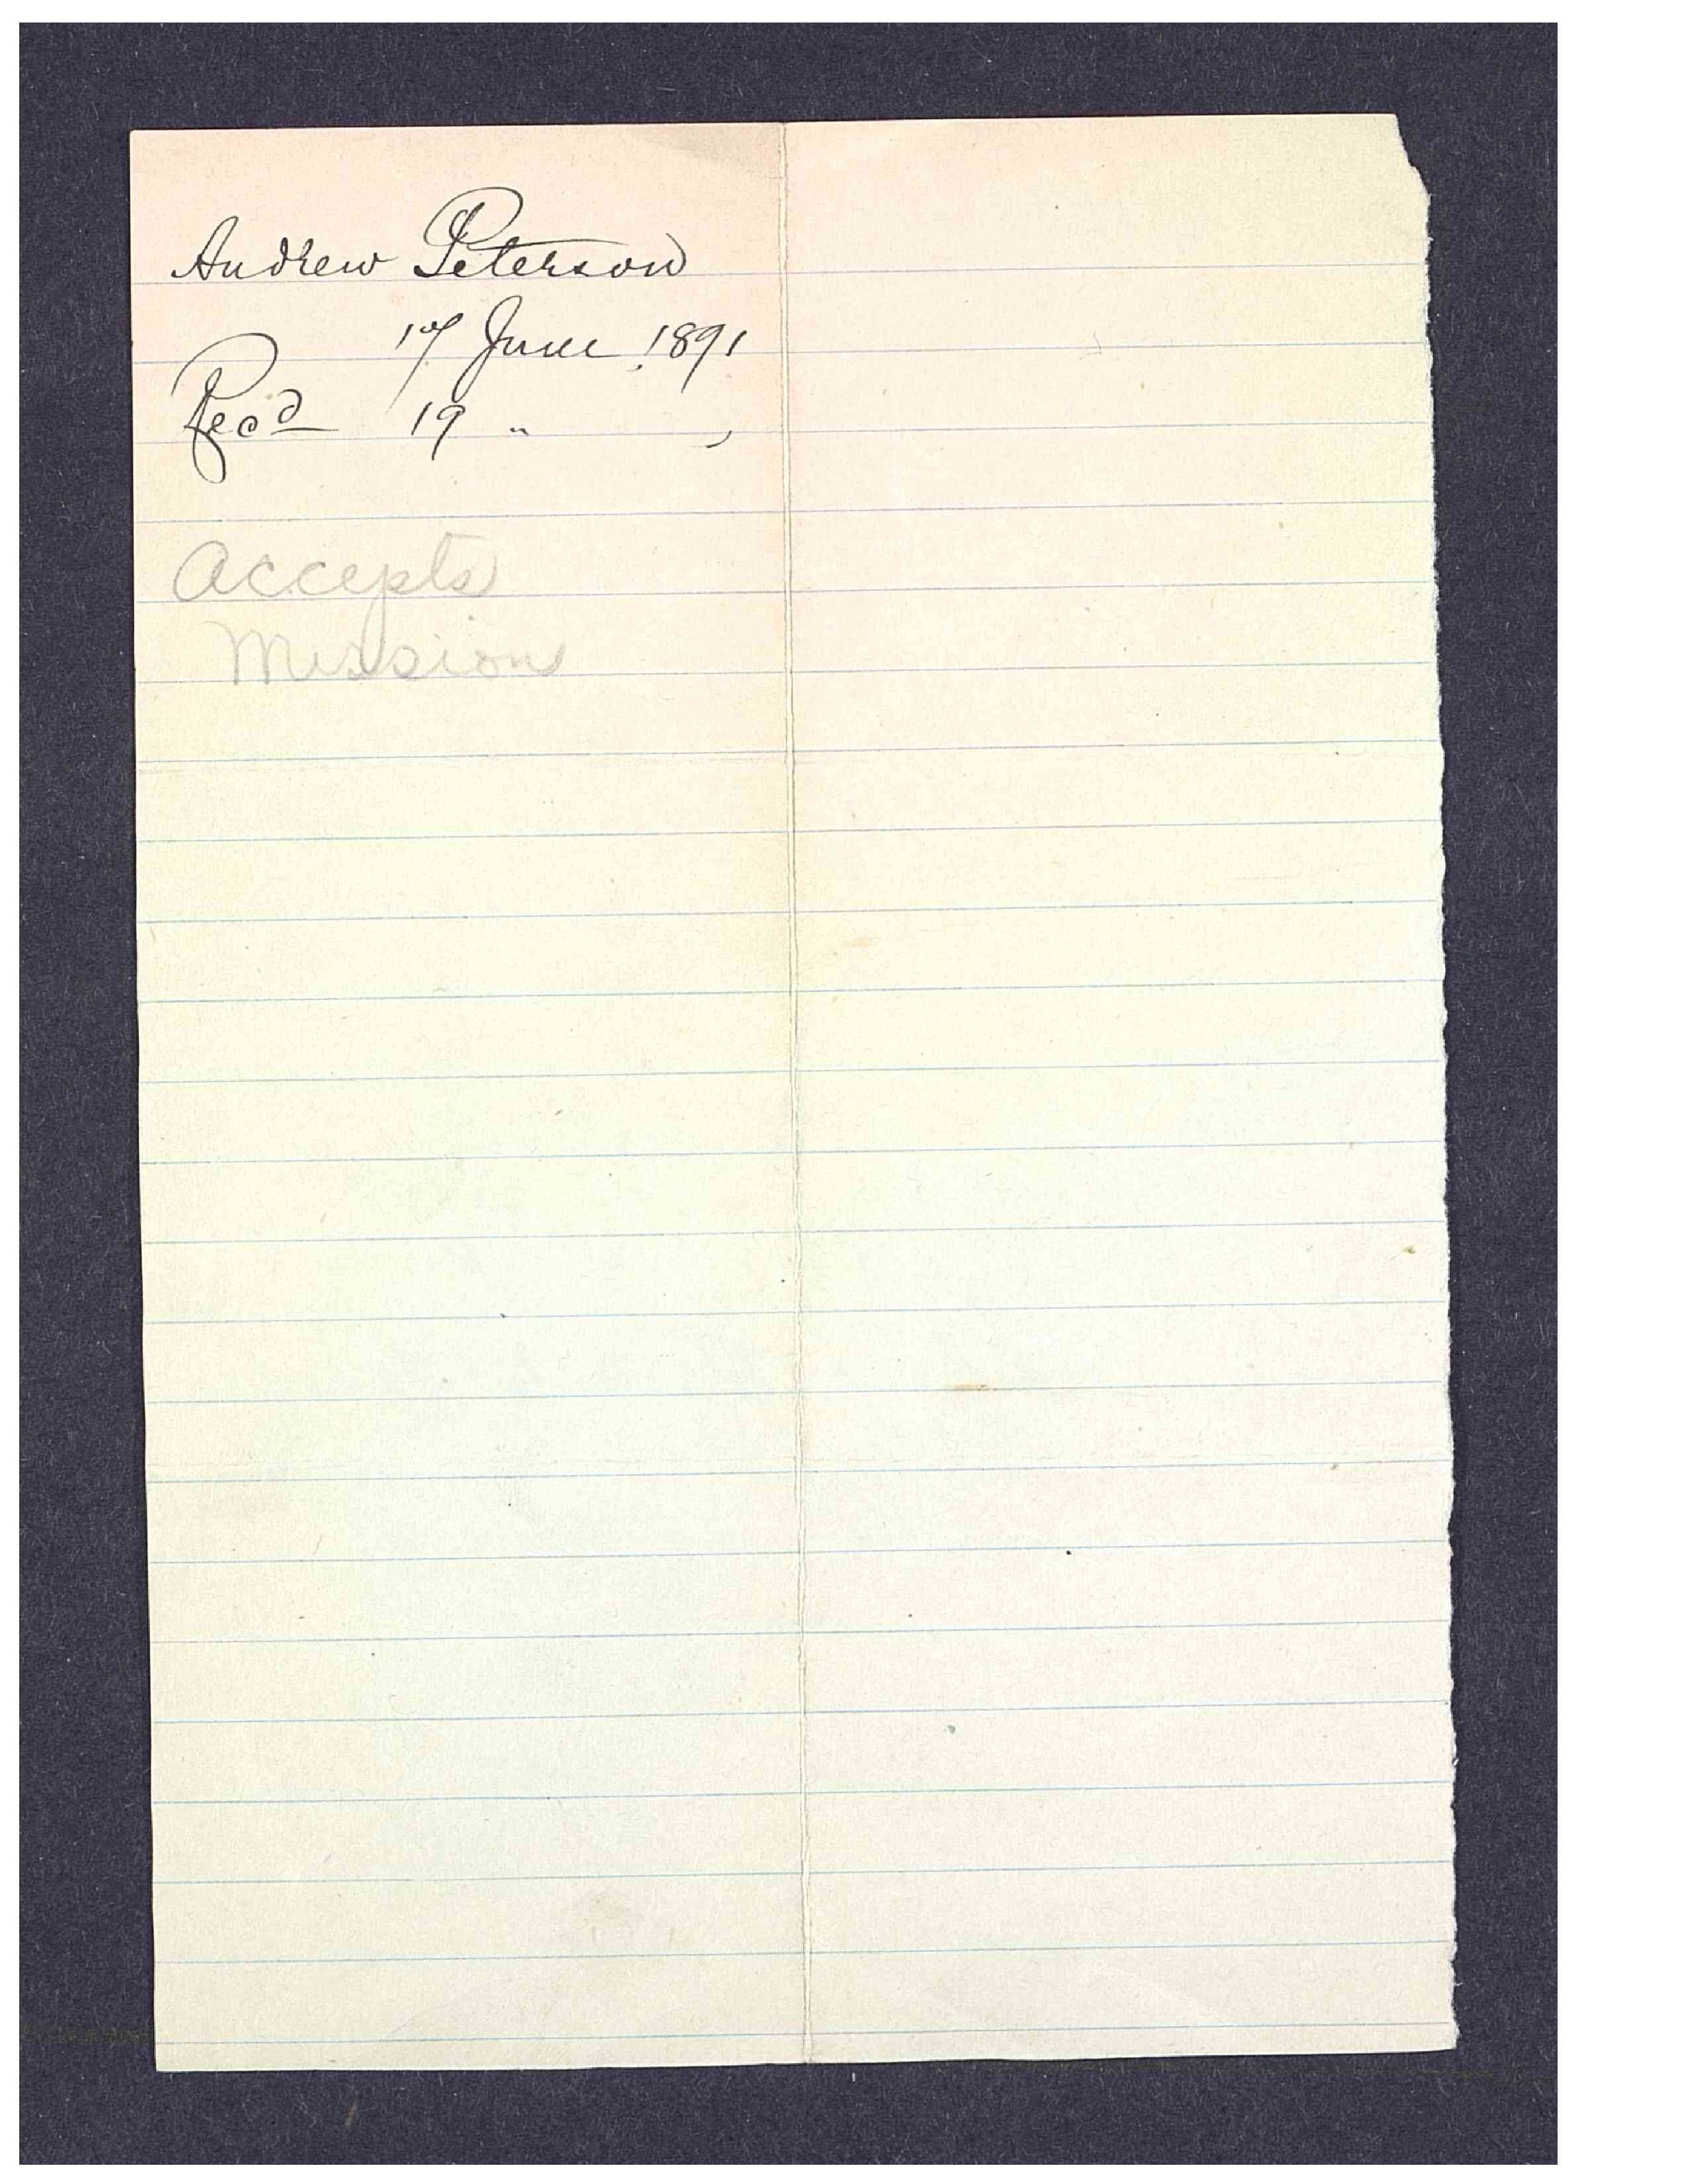 Andrew Peterson
17 June 1891
Recd 19 " "
Accepts
Mission